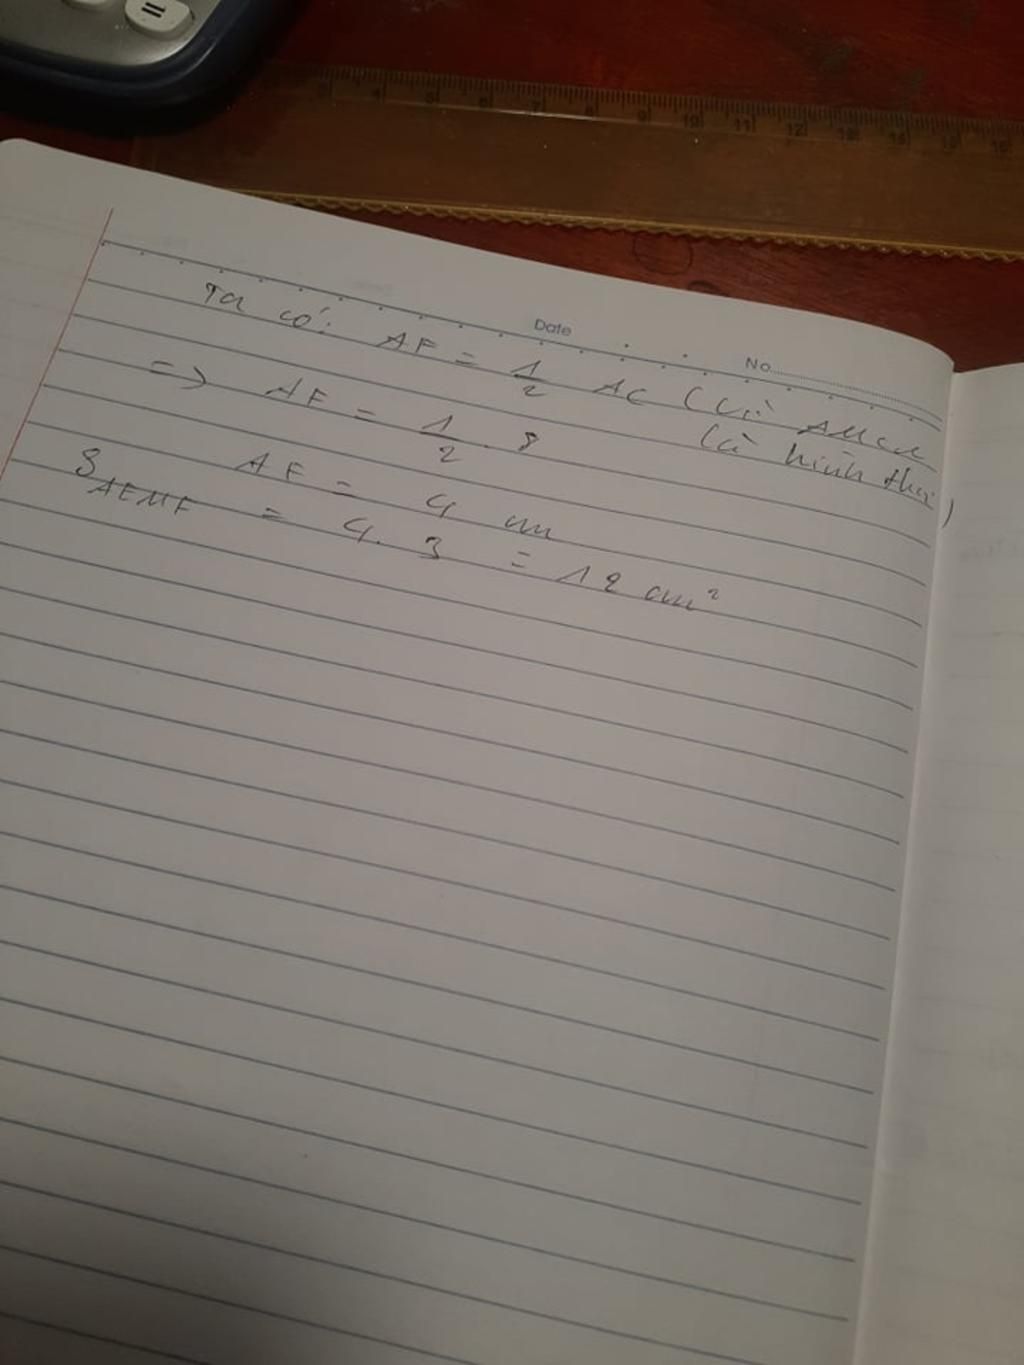 Date
No
Ta có: AF = 1/2 AC (vì AMCN
là hình thoi)
=> AF = 1/2 . 8
AF = 4 cm
S AEMF = 4.3 = 12 cm²
=
4 5 6 7 8 9 10 11 12 13 14 15 16